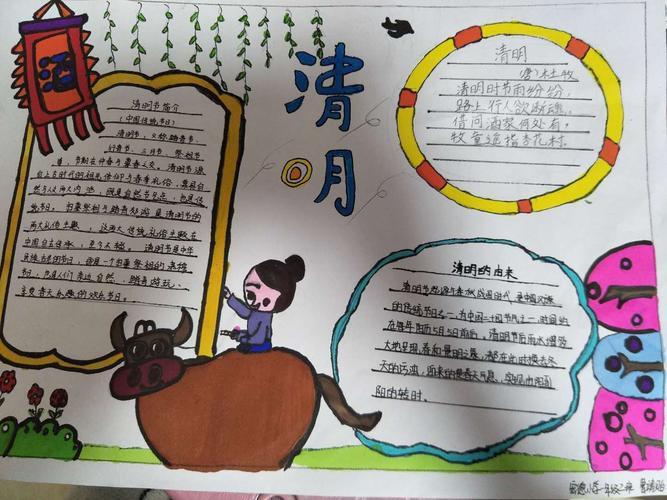 酒
清明
清明节简介
(中国传统节日)
清明节,又称踏青节、
行青节、三月节、祭祖节
等,节期在仲春与暮春之交。清明节源
自上古时代的祖先信仰与春季礼俗,兼具自
然与人文两大内涵,既是自然节气点,也是传
统节日,扫墓祭祖与踏青郊游是清明节的
两大礼俗主题,这两大传统礼俗主题在
中国自古传承,至今不辍。清明节是中华
民族古老的节日,既是一个扫墓祭祖的肃穆
节日,也是人们亲近自然、踏青游玩、
享受春天乐趣的欢乐节日。
清明
(唐)杜牧
清明时节雨纷纷,
路上行人欲断魂。
借问酒家何处有,
牧童遥指杏花村。
清明的由来
清明节起源与春秋战国时代,是中国汉族
的传统节日之一,为中国二十四节气之一,时间约
在每年的阳历5月5日前后。清明节后雨水增多
大地呈现春和景明之象,都在此时换去冬
天的污浊,迎来的是春天气息,实现由阴到
阳的转时。
小学一年级二班